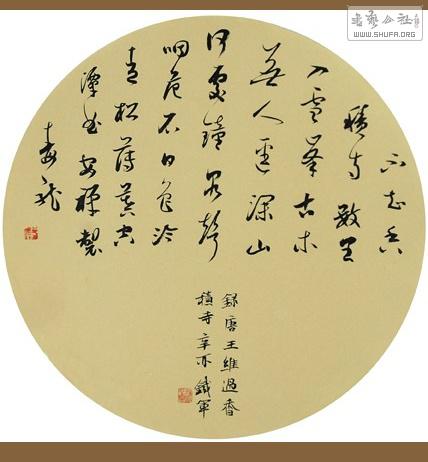 不知香
積寺數里
入雲峯古木
無人逕深山
何處鐘泉聲
咽危石日色冷
青松薄暮空
潭曲安禪製
毒龍
錄唐王維過香
積寺辛 鐵軍
书艺公社
WWW.SHUFA.ORG